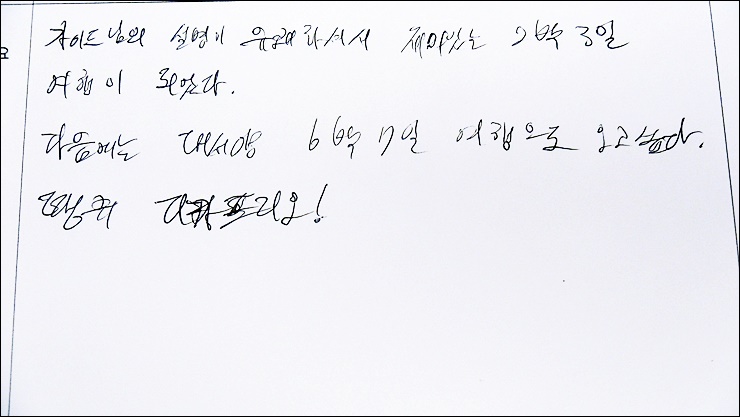 가이드님의 설명이 유쾌하셔서 재미있는 2박 3일
여행이 되었다.
다음에는 대서양 6박 7일 여행으로 오고싶다.
땡큐 디카프리오!